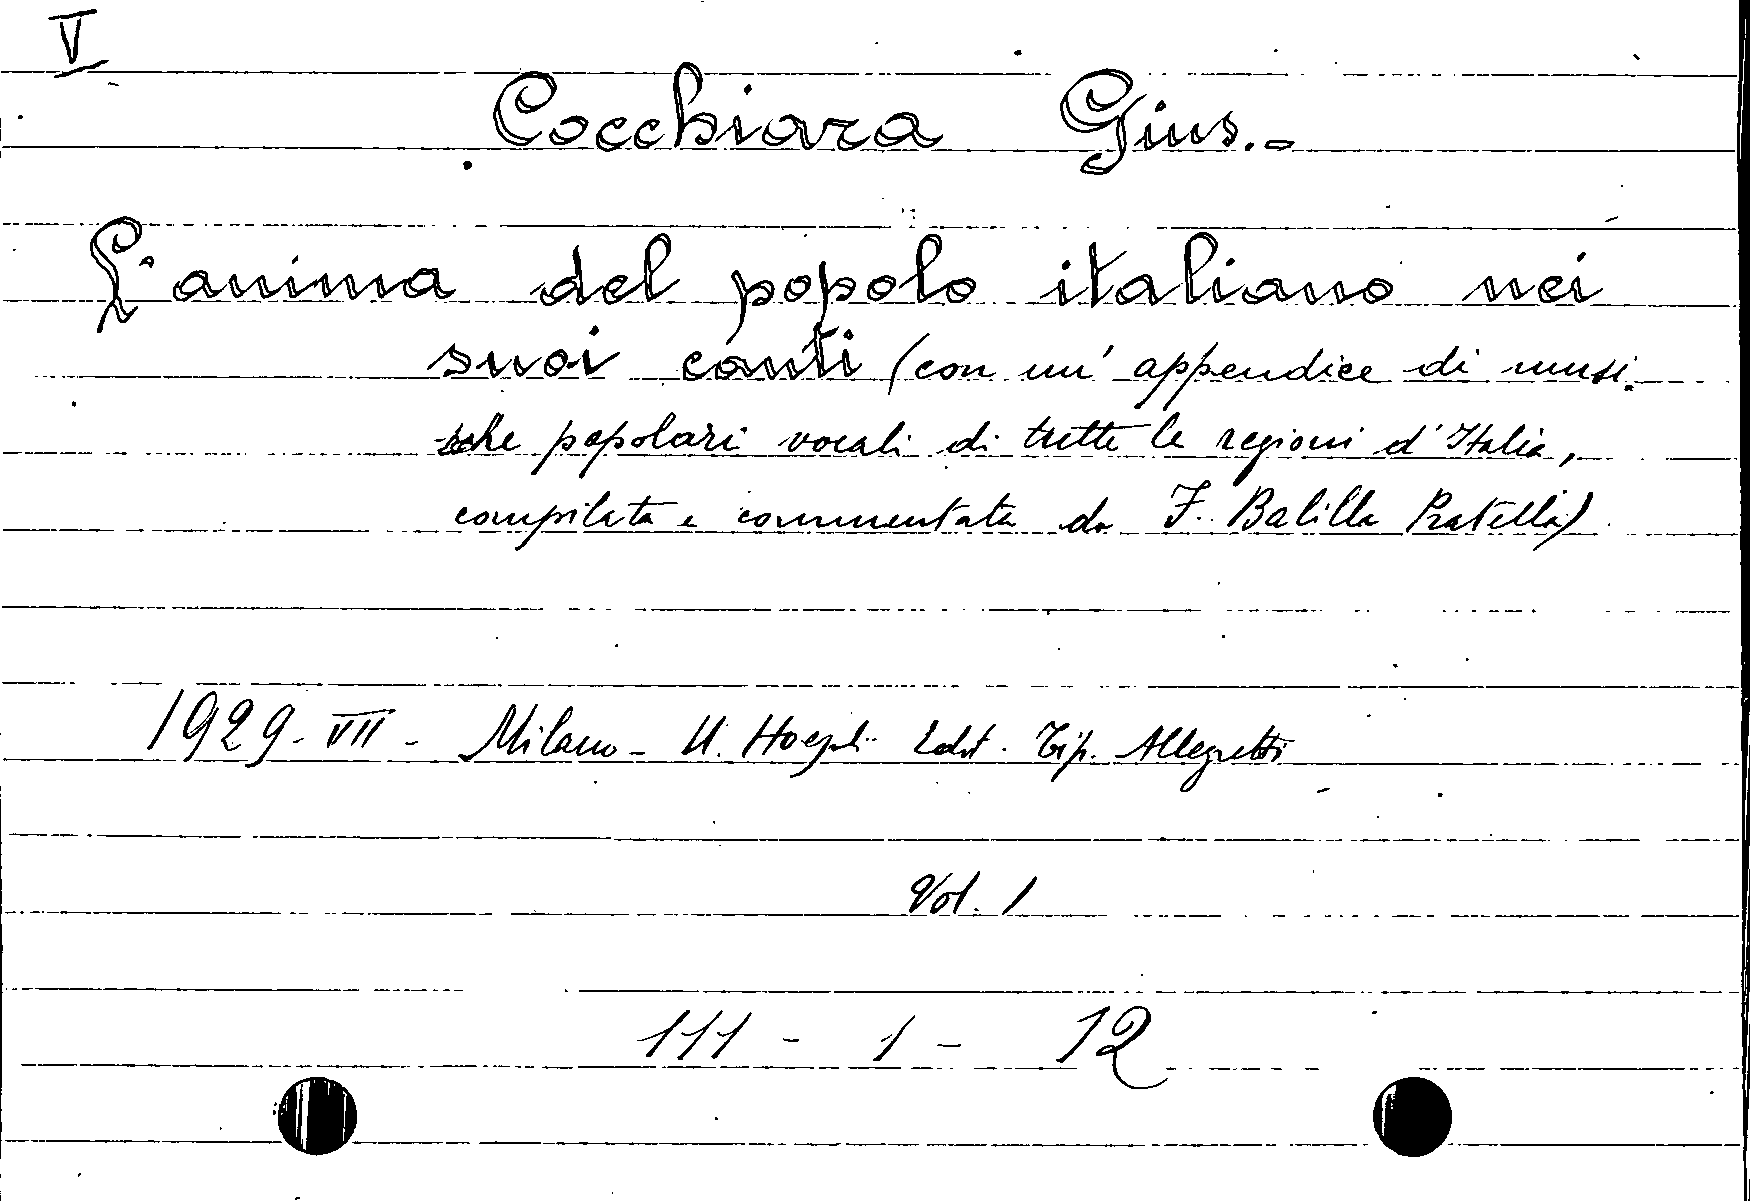 V
Cocchiara Gius.-
L'anima del popolo italiano nei
suoi canti (con un' appendice di musi-
che popolari vocali di tutte le regioni d'Italia,
compilata e commentata da F. Balilla Pratella)
1929-VII- Milano- U. Hoepli Edit. Tip. Allegretti
Vol. 1
111 - 1 - 12